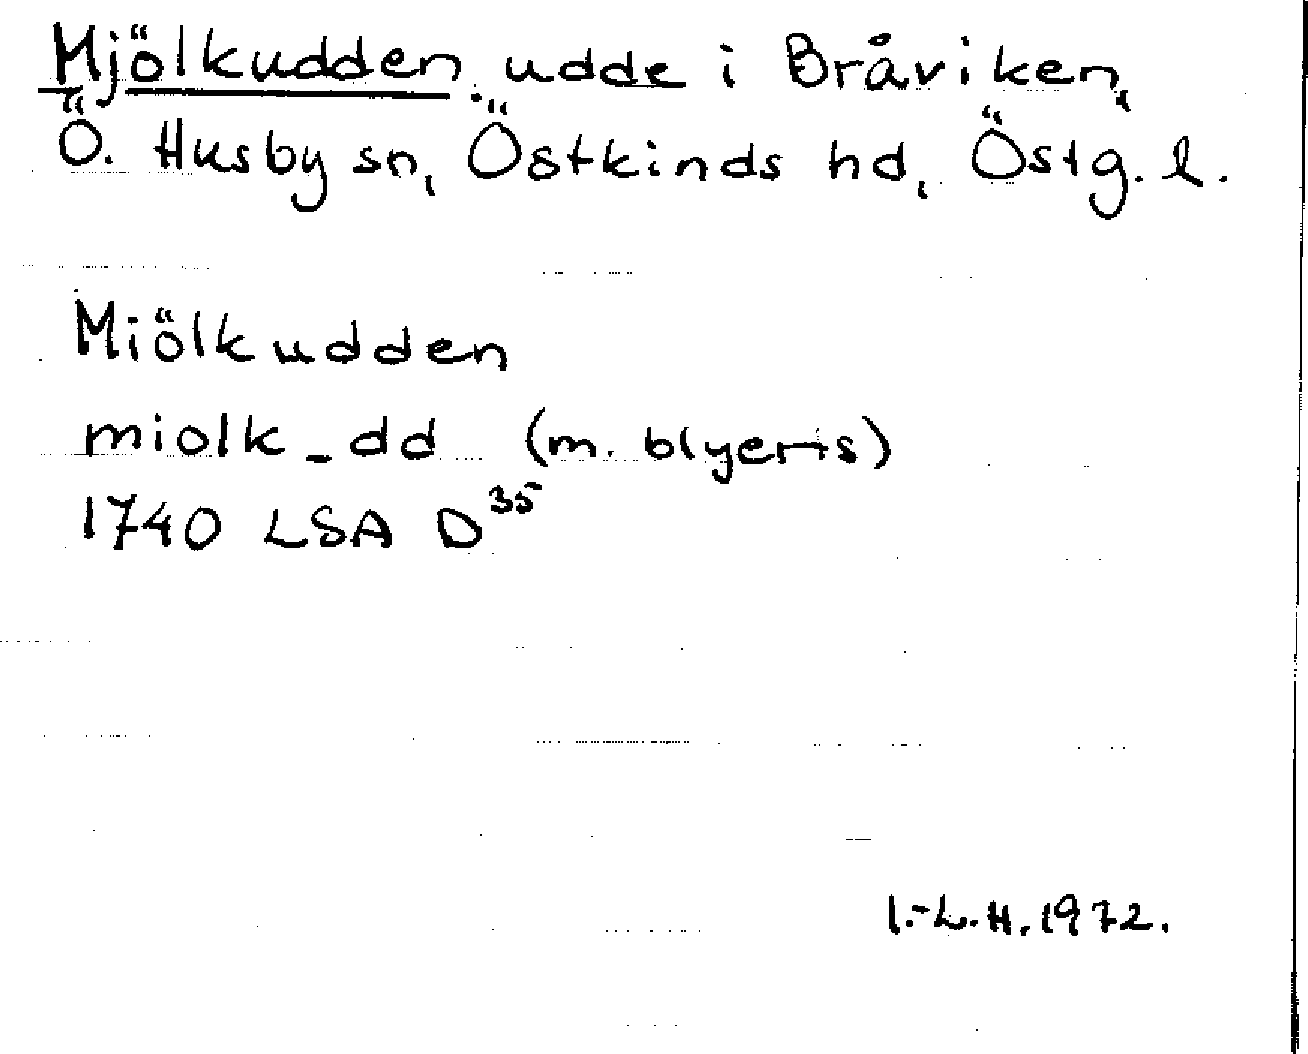 Mjölkudden, udde i Bråviken,
Ö. Husby sn, Östkinds hd, Östg. l.
Miölkudden
miolk_dd (m. blyerts)
1740 LSA D³⁵
I.-L.H. 1972.